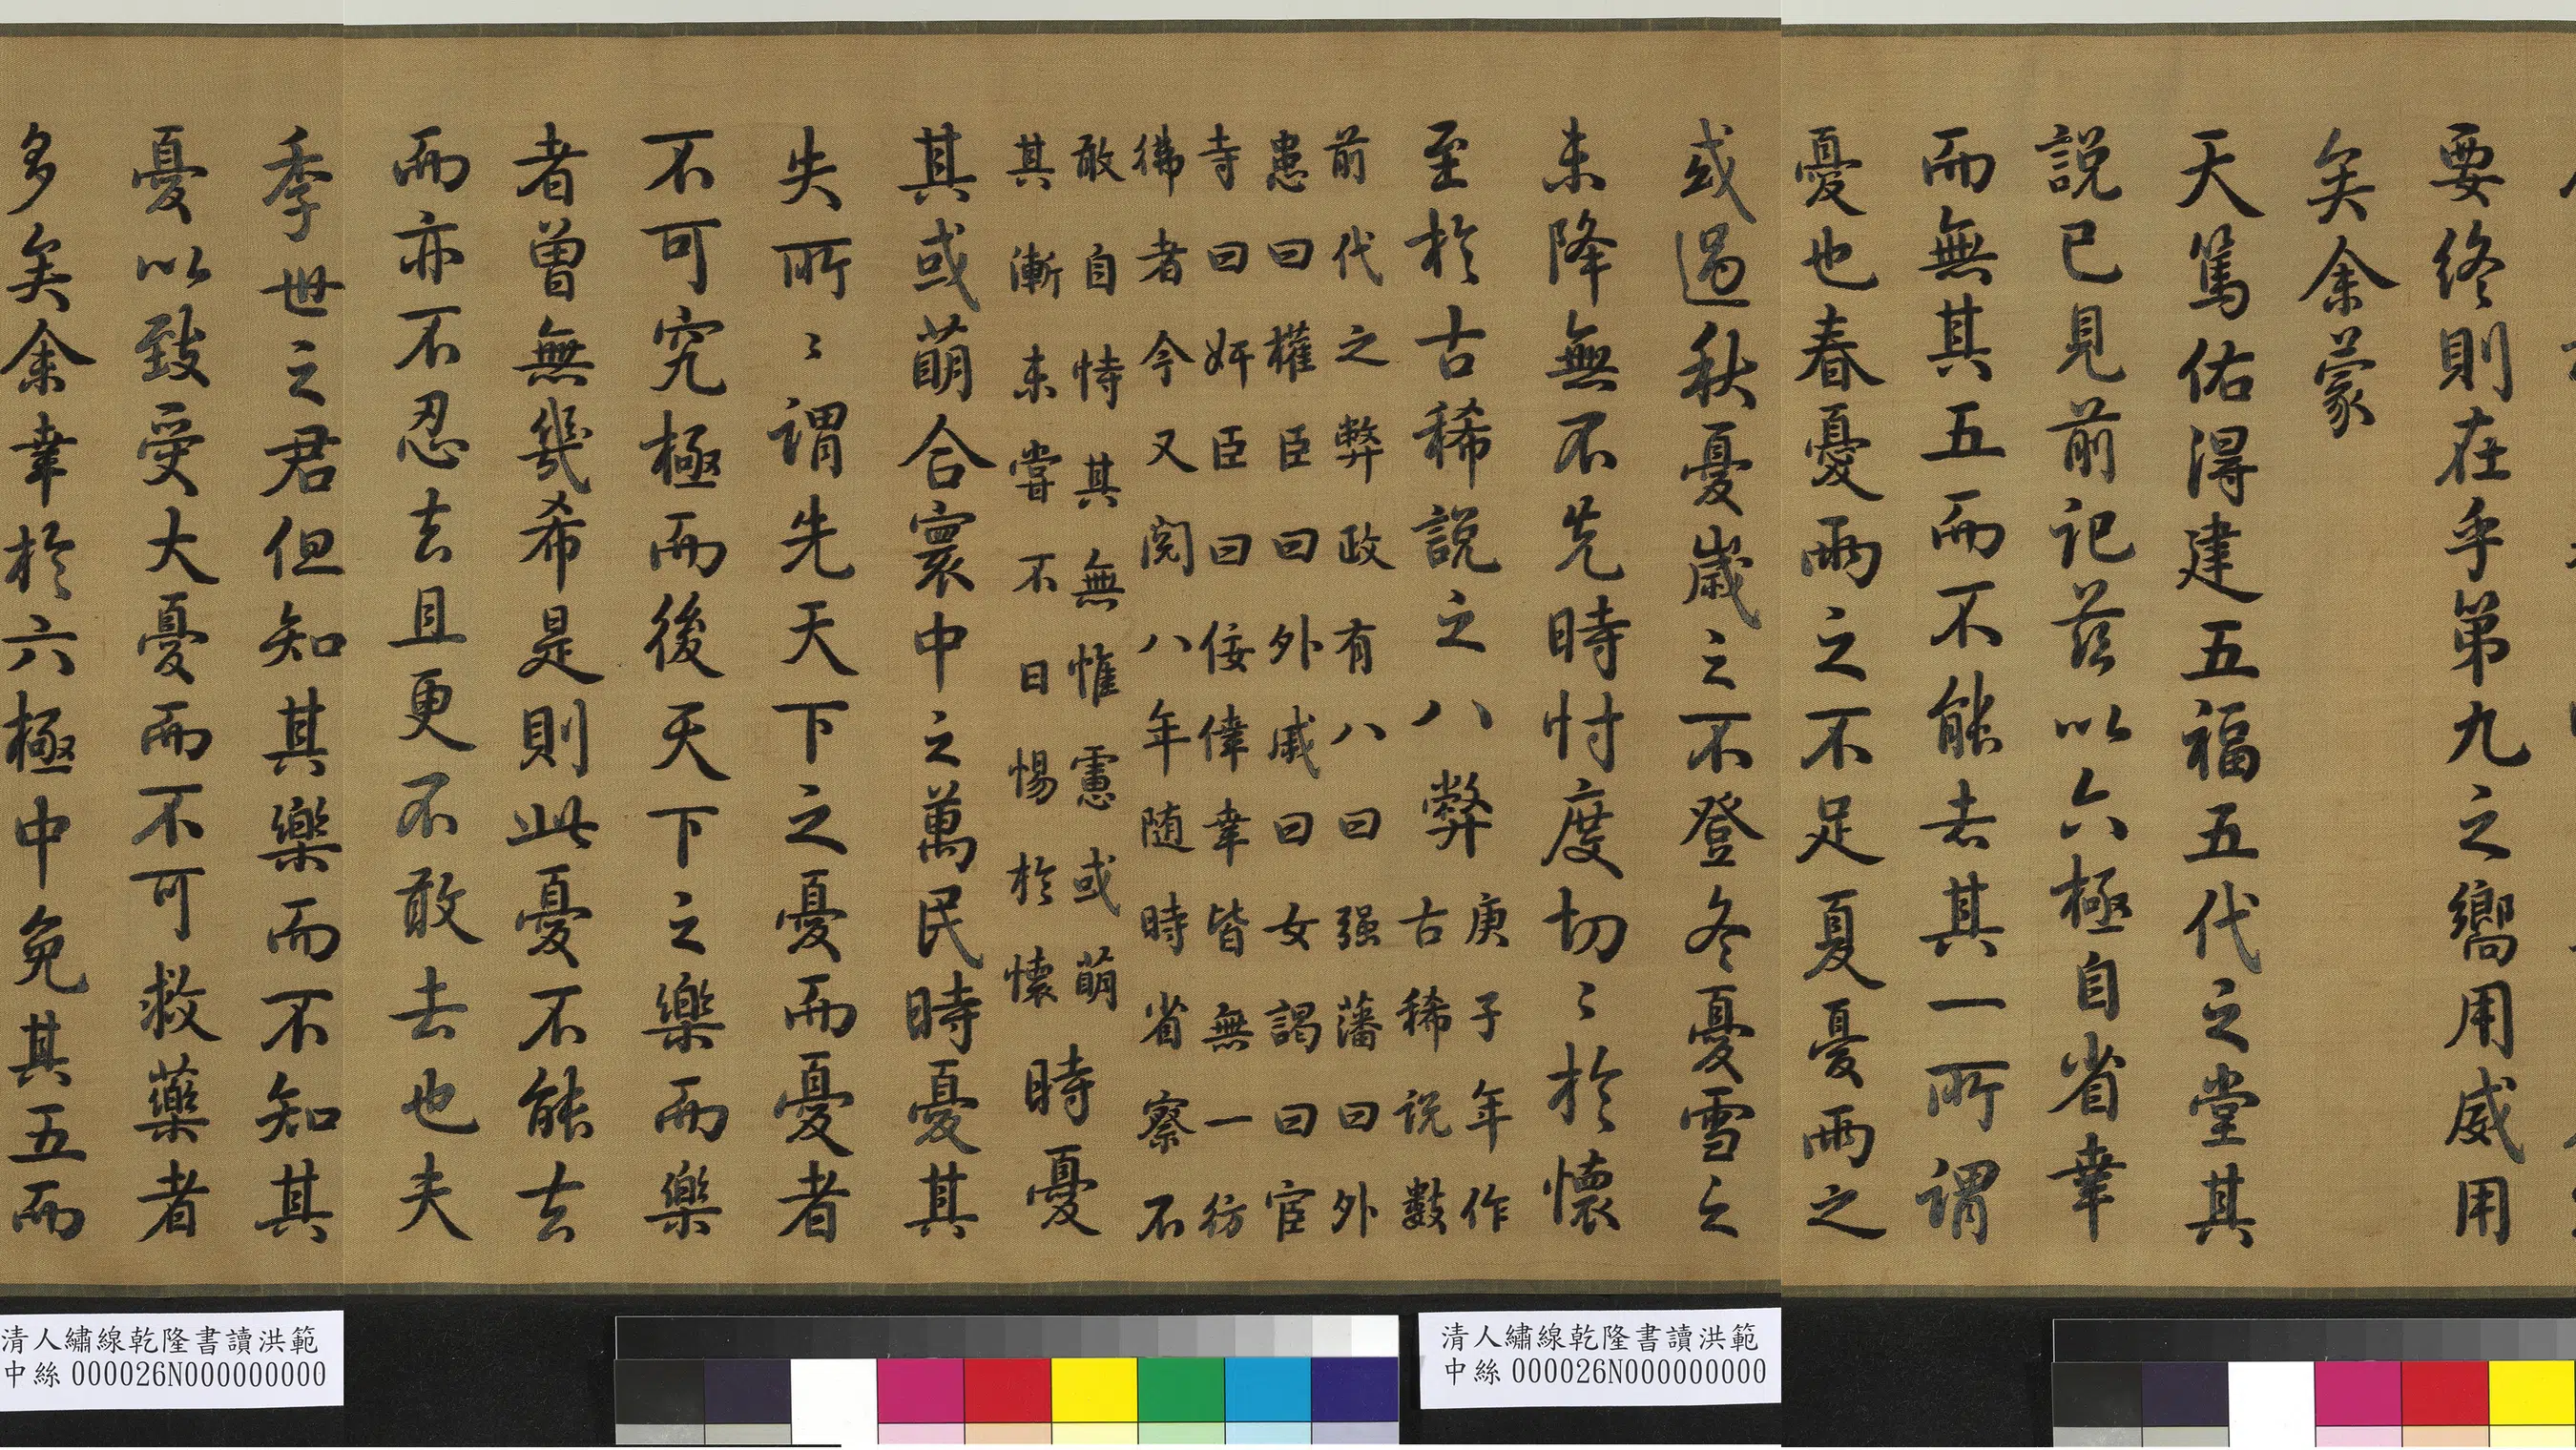 要終則在乎第九之嚮用威用
矣余蒙
天篤佑得建五福五代之堂其
說已見前記茲以六極自省幸
而無其五而不能去其一所謂
憂也春憂雨之不足夏憂雨之
或過秋憂歲之不登冬憂雪之
未降無不先時忖度切〻於懷
至於古稀說之八弊
庚子年作
古稀說數
前代之弊政有八曰强藩曰外
患曰權臣曰外戚曰女謁曰宦
寺曰奸臣曰佞倖幸皆無一彷
彿者今又閱八年随時省察不
敢自恃其無惟慮或萌
其漸未嘗不日惕於懷
時憂
其或萌合寰中之萬民時憂其
失所〻謂先天下之憂而憂者
不可究極而後天下之樂而樂
者曾無幾希是則此憂不能去
而亦不忍去且更不敢去也夫
季世之君但知其樂而不知其
憂以致受大憂而不可救藥者
多矣余幸於六極中免其五而
清人繡線乾隆書讀洪範
中絲 000026N000000000
清人繡線乾隆書讀洪範
中絲 000026N000000000